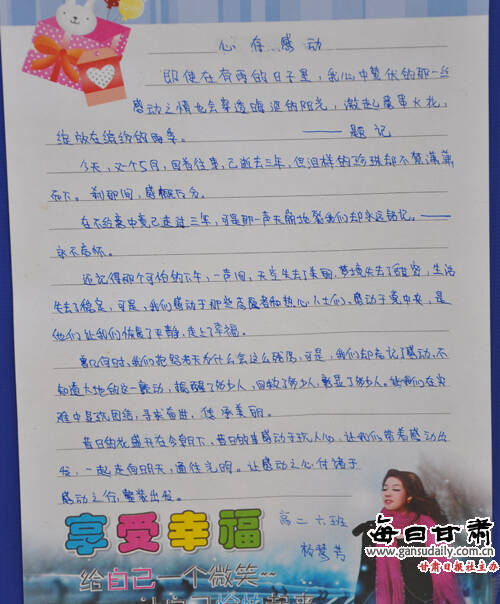 心存感动
即使在有雨的日子里,我心中蛰伏的那一丝
感动之情也会穿透晦涩的阳光,激起星星火花,
绽放在缤纷的雨季。 ——题记
今天,又个5月,回首往事,已逝去三年,但泪样的珍珠却不禁潸潸
而下。刹那间,感慨万分。
在不经意中竟已走过三年,可是那一声天崩地裂我们却永远铭记。——
永不忘怀。
还记得那个可怕的下午,一声闷,天空失去了美丽,梦境失去了甜密,生活
失去了稳定,可是,我们感动于那些志愿者和热心人士们,感动于党中央,是
他们让我们恢复了平静,走上了幸福。
曾几何时,我们抱怨老天为什么会这么残忍,可是,我们却忘记了感动,不
知道大地的这一颤动,摇醒了多少人,回报了多少人,彰显了多少人。让我们在灾
难中互玩团结,寻求奋进,传承美丽。
昔日的花盛开在今朝下,昔日的事感动于我人心,让我们带着感动出
发,一起走向明天,通往光明。让感动之心付诸于
感动之行,整装出发。
高二十班
杨梦
享受幸福
给自己一个微笑~~
让自己愉快起来
每日甘肃
www.gansudaily.com.cn
甘肃日报社主办